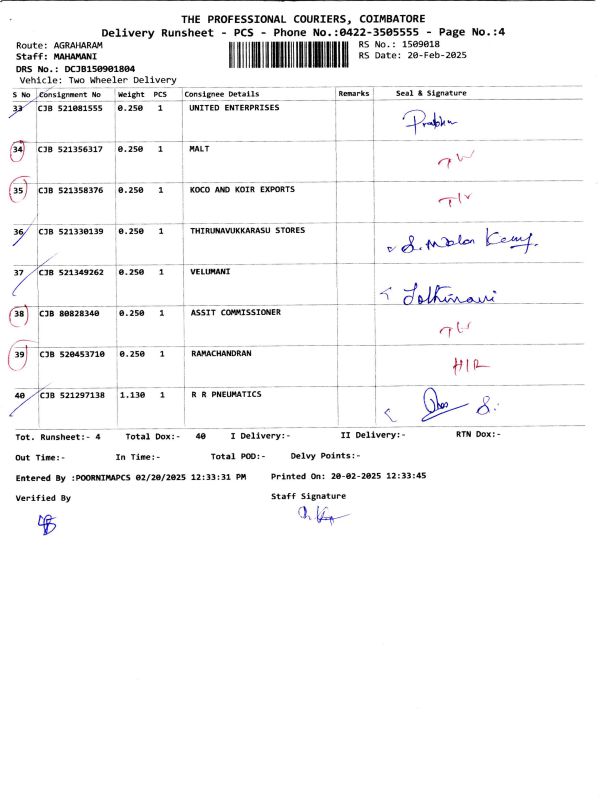 THE PROFESSIONAL COURIERS, COIMBATORE
Delivery Runsheet - PCS - Phone No.:0422-3505555 - Page No.:4
Route: AGRAHARAM RS No.: 1509018
Staff: MAHAMANI RS Date: 20-Feb-2025
DRS No.: DCJB150901804
Vehicle: Two Wheeler Delivery
S No Consignment No Weight PCS Consignee Details Remarks Seal & Signature
33 CJB 521081555 0.250 1 UNITED ENTERPRISES
34 CJB 521356317 0.250 1 MALT
35 CJB 521358376 0.250 1 KOCO AND KOIR EXPORTS
36 CJB 521330139 0.250 1 THIRUNAVUKKARASU STORES
37 CJB 521349262 0.250 1 VELUMANI
38 CJB 80828340 0.250 1 ASSIT COMMISSIONER
39 CJB 520453710 0.250 1 RAMACHANDRAN
40 CJB 521297138 1.130 1 R R PNEUMATICS
Tot. Runsheet:- 4 Total Dox:- 40 I Delivery:- II Delivery:- RTN Dox:-
Out Time:- In Time:- Total POD:- Delvy Points:-
Entered By :POORNIMAPCS 02/20/2025 12:33:31 PM Printed On: 20-02-2025 12:33:45
Verified By Staff Signature